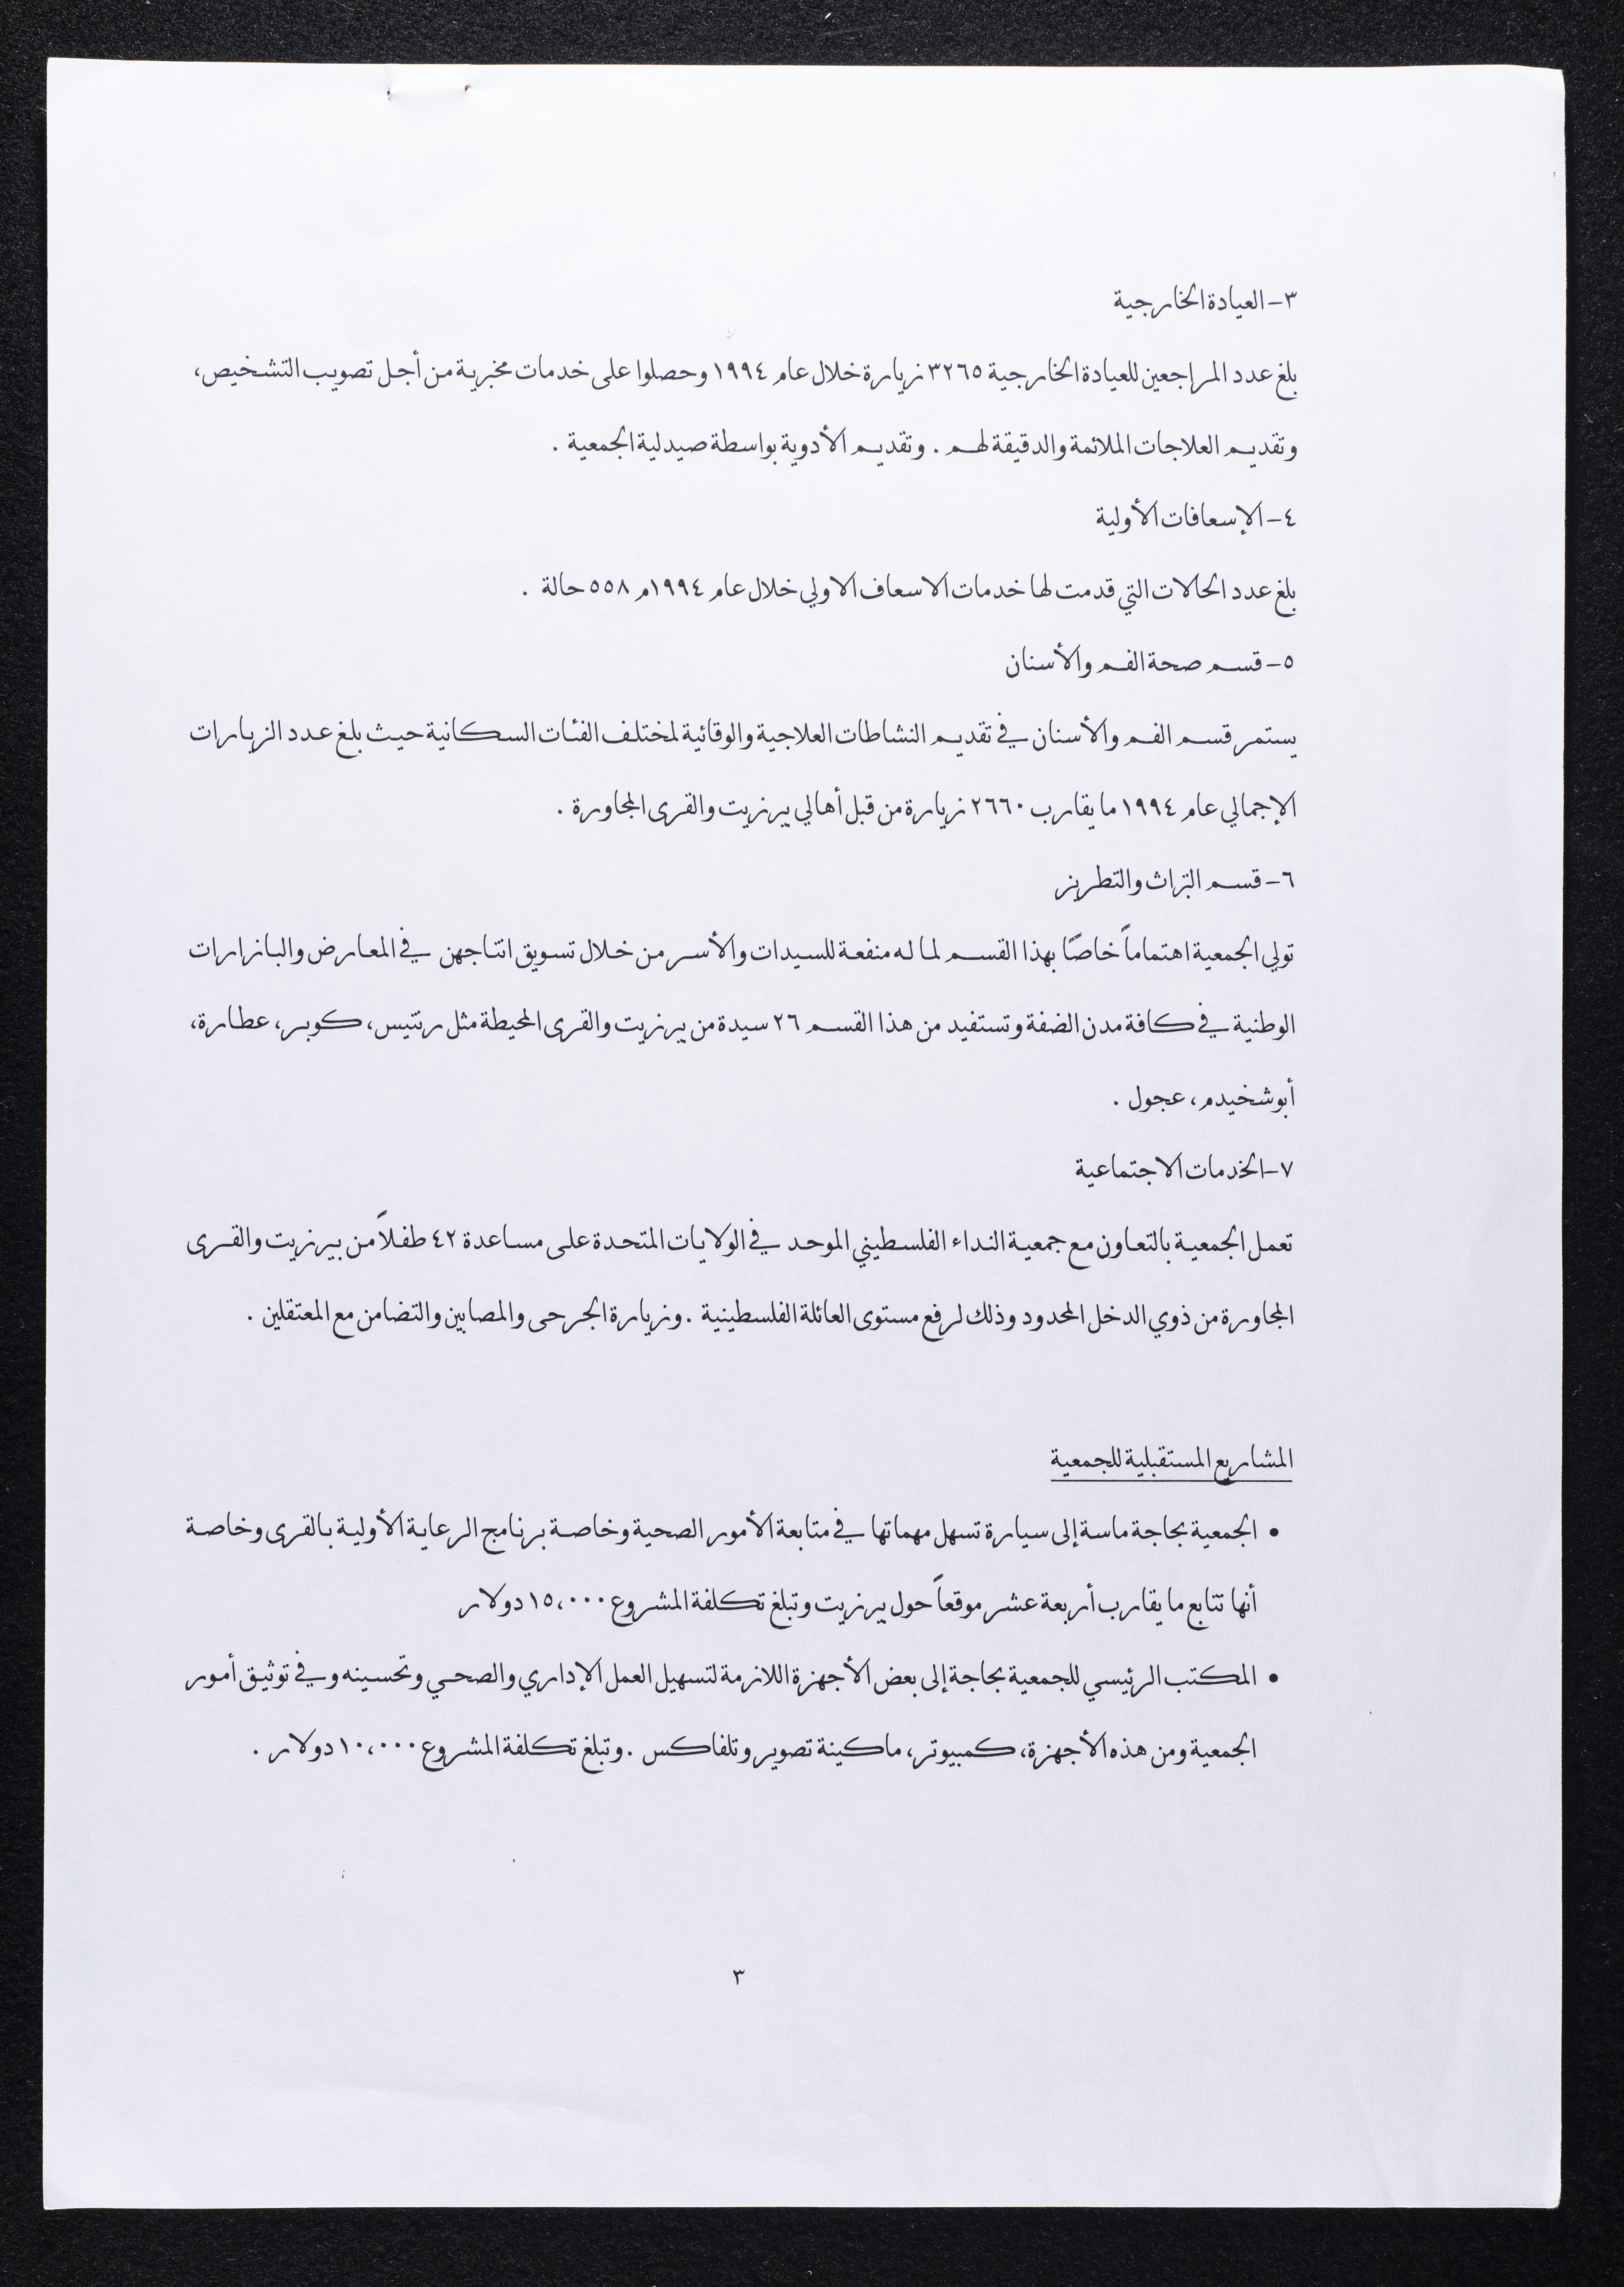 ٣- العيادة الخارجية
بلغ عدد المراجعين للعيادة الخارجية ٣٢٦٥ زيارة خلال عام ١٩٩٤ وحصلوا على خدمات مخبرية من أجل تصويب التشخيص،
وتقديم العلاجات الملائمة والدقيقة لهم . وتقديم الأدوية بواسطة صيدلية الجمعية .
٤- الإسعافات الأولية
بلغ عدد الحالات التي قدمت لها خدمات الاسعاف الاولي خلال عام ١٩٩٤م ٥٥٨ حالة .
٥- قسم صحة الفم والأسنان
يستمر قسم الفم والأسنان في تقديم النشاطات العلاجية والوقائية لمختلف الفئات السكانية حيث بلغ عدد الزيارات
الإجمالي عام ١٩٩٤ ما يقارب ٢٦٦٠ زيارة من قبل أهالي بيرزيت والقرى المجاورة .
٦- قسم التراث والتطريز
تولي الجمعية اهتماماً خاصًا بهذا القسم لما له منفعة للسيدات والأسر من خلال تسويق انتاجهن في المعارض والبازارات
الوطنية في كافة مدن الضفة وتستفيد من هذا القسم ٢٦ سيدة من بيرزيت والقرى المحيطة مثل رنتيس، كوبر، عطارة،
أبوشخيدم، عجول .
٧-الخدمات الاجتماعية
تعمل الجمعية بالتعاون مع جمعية النداء الفلسطيني الموحد في الولايات المتحدة على مساعدة ٤٢ طفلاً من بيرزيت والقرى
المجاورة من ذوي الدخل المحدود وذلك لرفع مستوى العائلة الفلسطينية . وزيارة الجرحى والمصابين والتضامن مع المعتقلين .
المشاريع المستقبلية للجمعية
• الجمعية بحاجة ماسة إلى سيارة تسهل مهماتها في متابعة الأمور الصحية وخاصة برنامج الرعاية الأولية بالقرى وخاصة
أنها تتابع ما يقارب أربعة عشر موقعاً حول بيرزيت وتبلغ تكلفة المشروع ١٥،٠٠٠ دولار
• المكتب الرئيسي للجمعية بحاجة إلى بعض الأجهزة اللازمة لتسهيل العمل الإداري والصحي وتحسينه وفي توثيق أمور
الجمعية ومن هذه الأجهزة، كمبيوتر، ماكينة تصوير وتلفاكس . وتبلغ تكلفة المشروع ١٠،٠٠٠ دولار .
٣